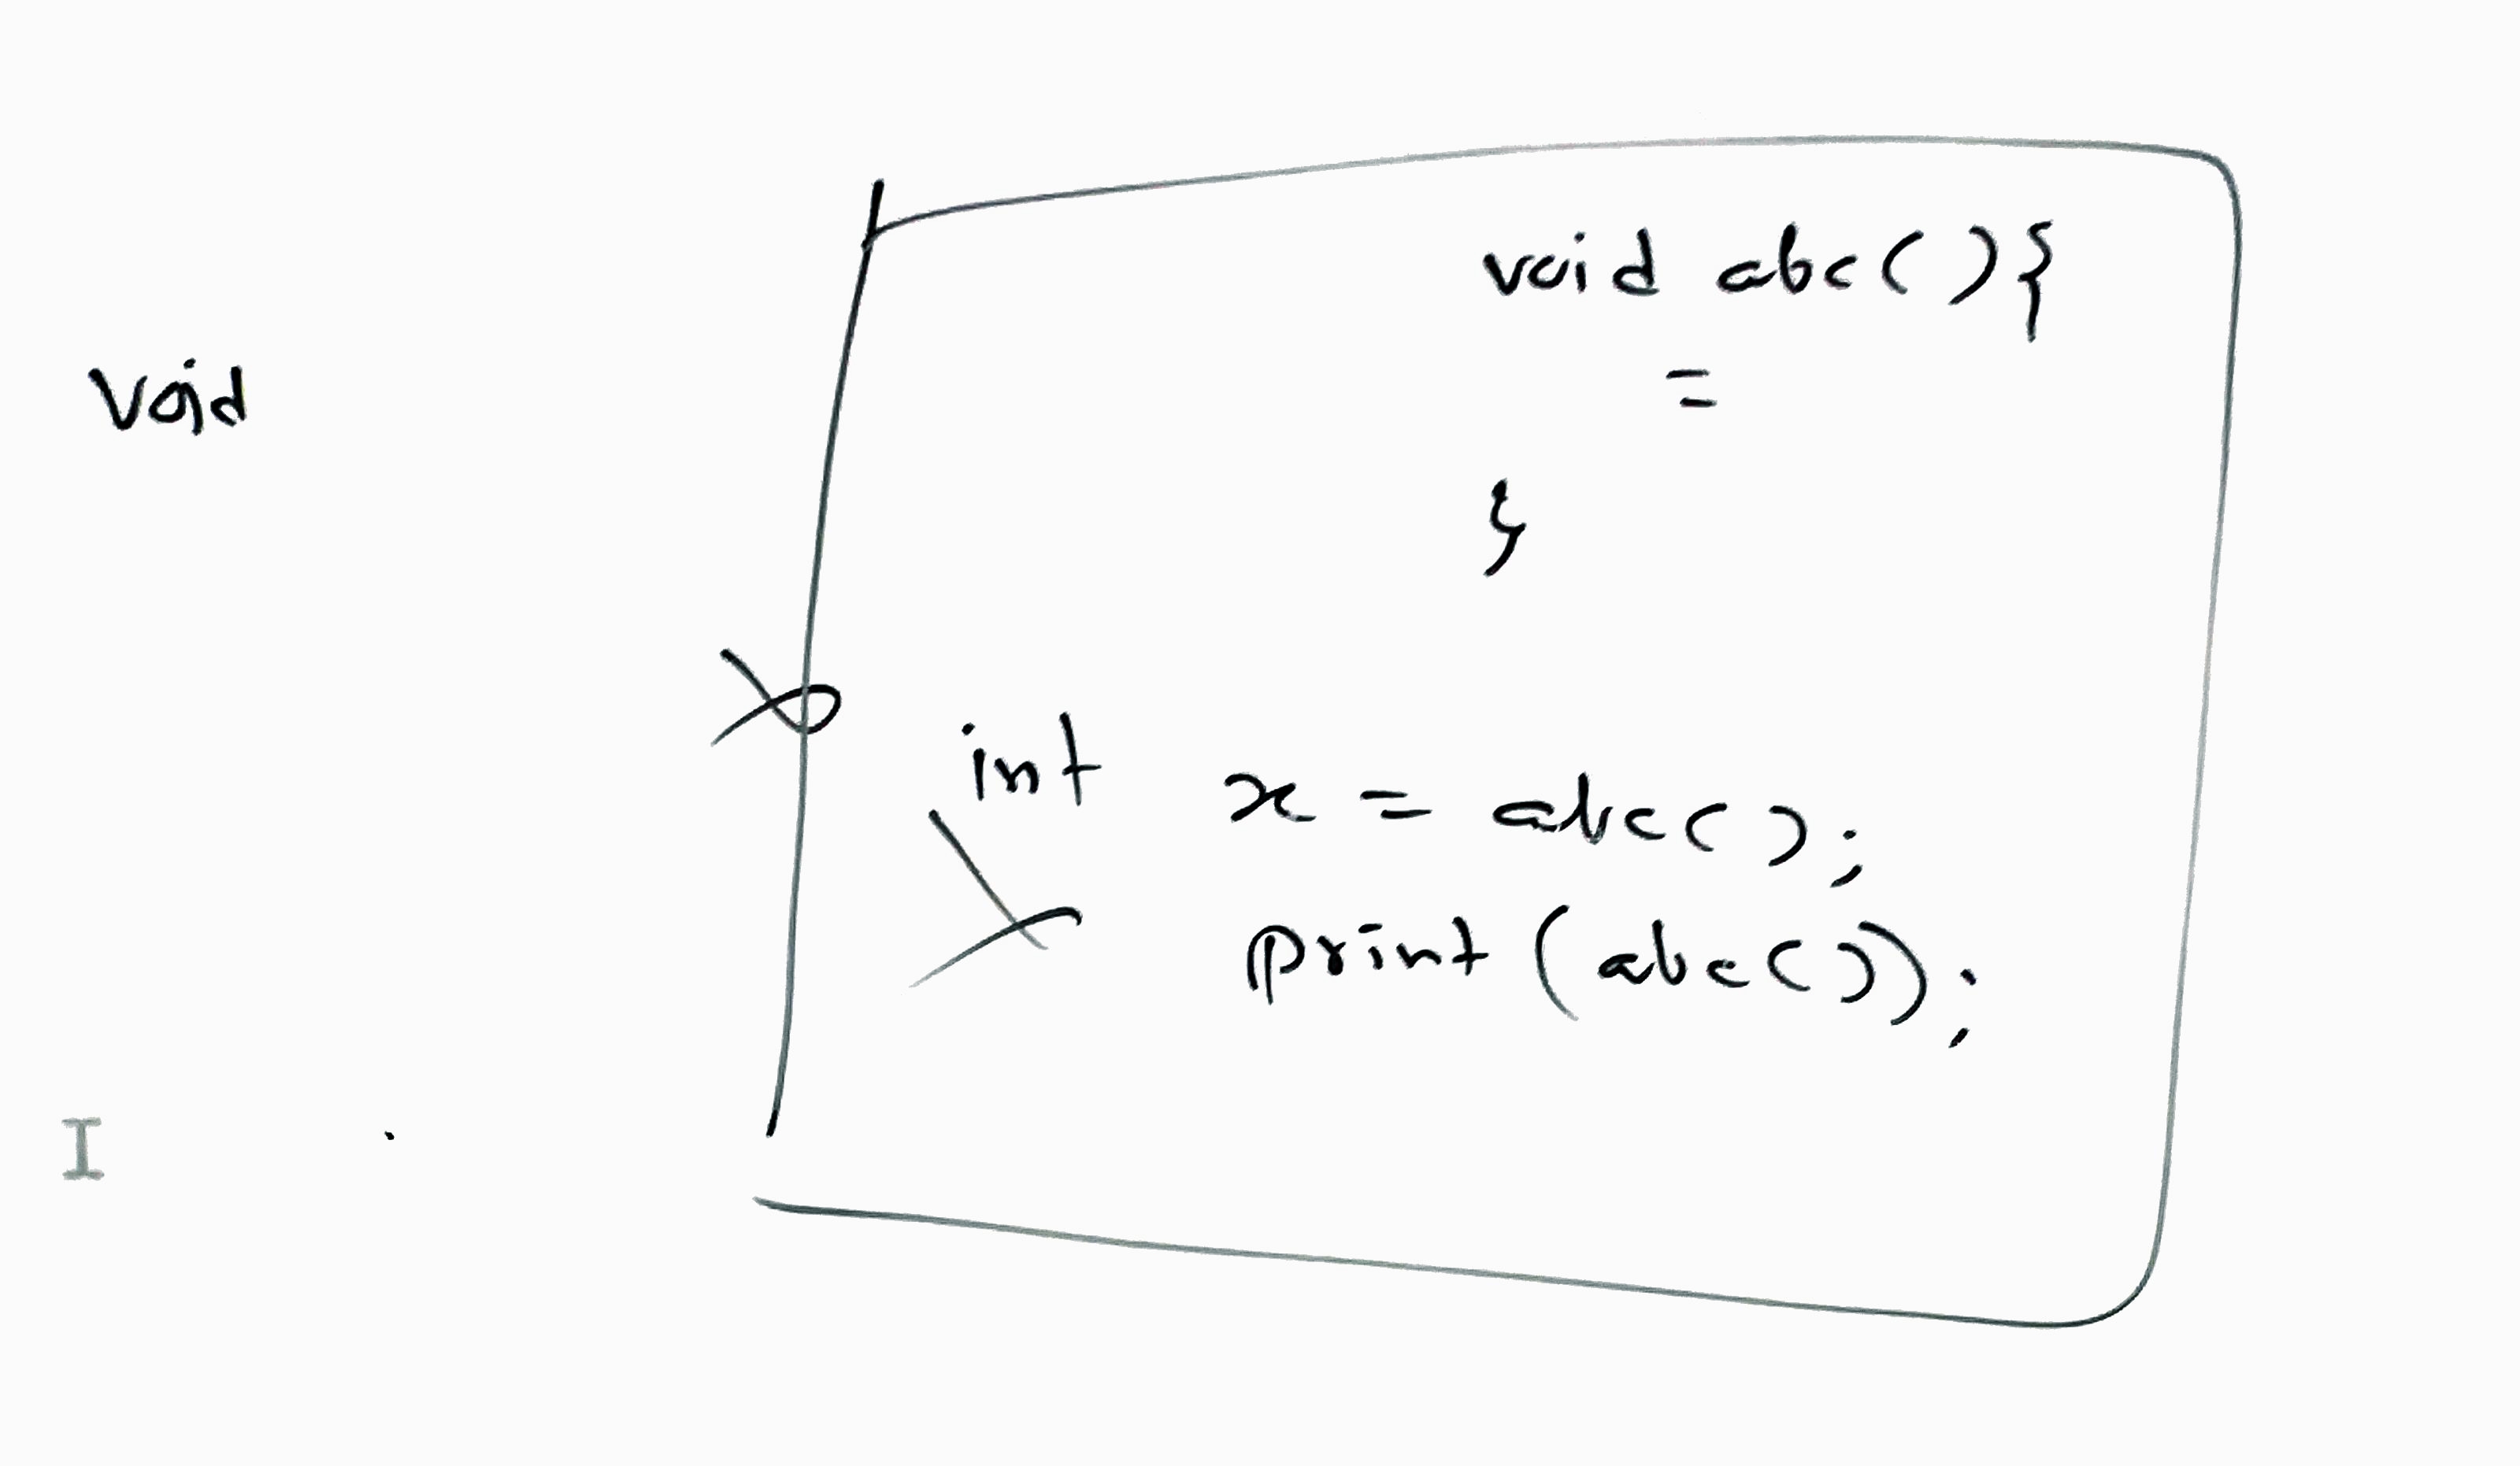 void
void abc(){
=
}
int x = abc();
print(abc());